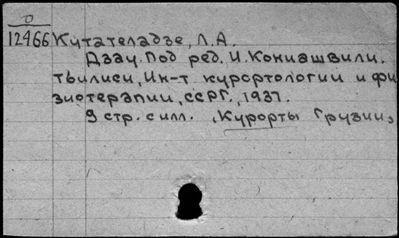 О
12466 Кутателадзе, Л.А.
Дзау. Под ред. И. Кониашвили.
Тбилиси, Ин-т курортологии и фи
зиотерапии, ССРГ., 1937.
9 стр. с илл. „Курорты Грузии„